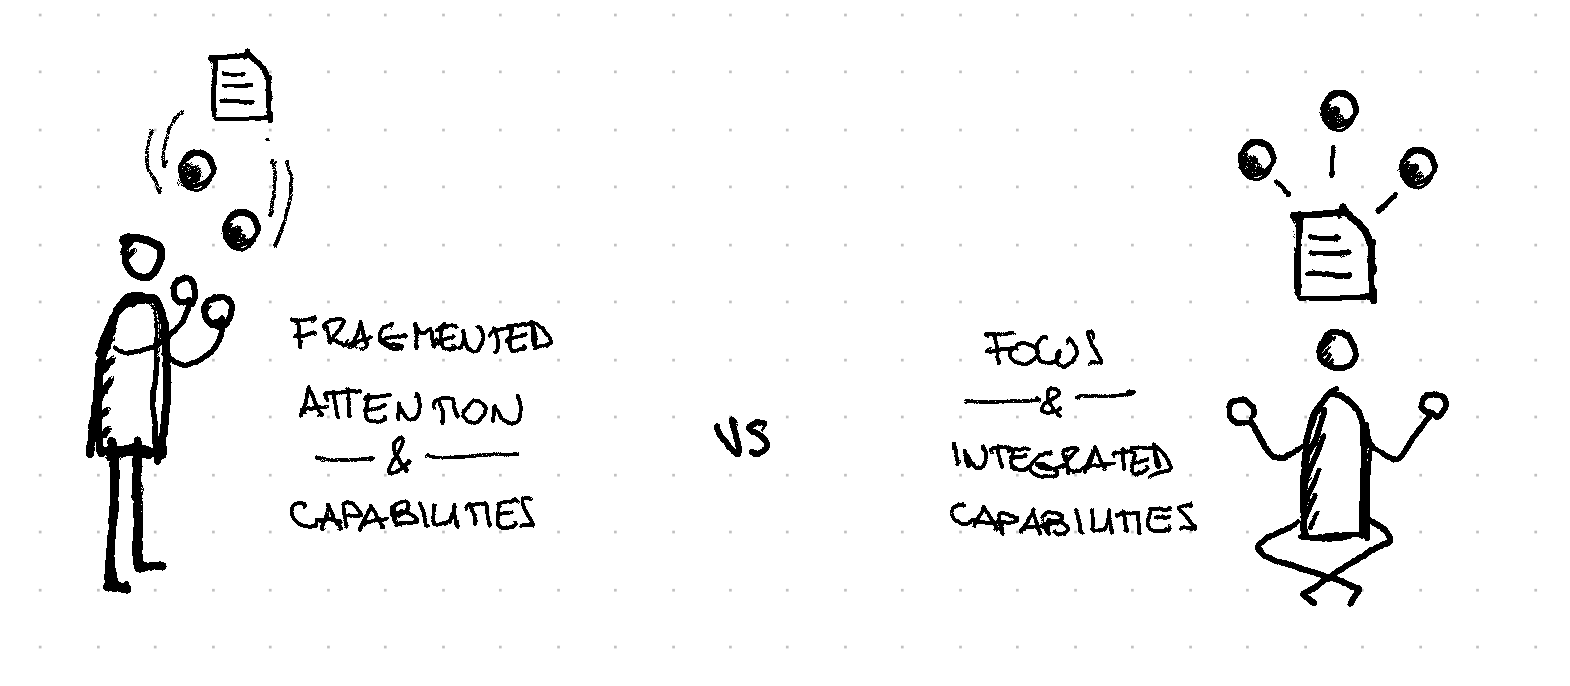 FRAGMENTED
ATTENTION
&
CAPABILITIES
VS
FOCUS
&
INTEGRATED
CAPABILITIES